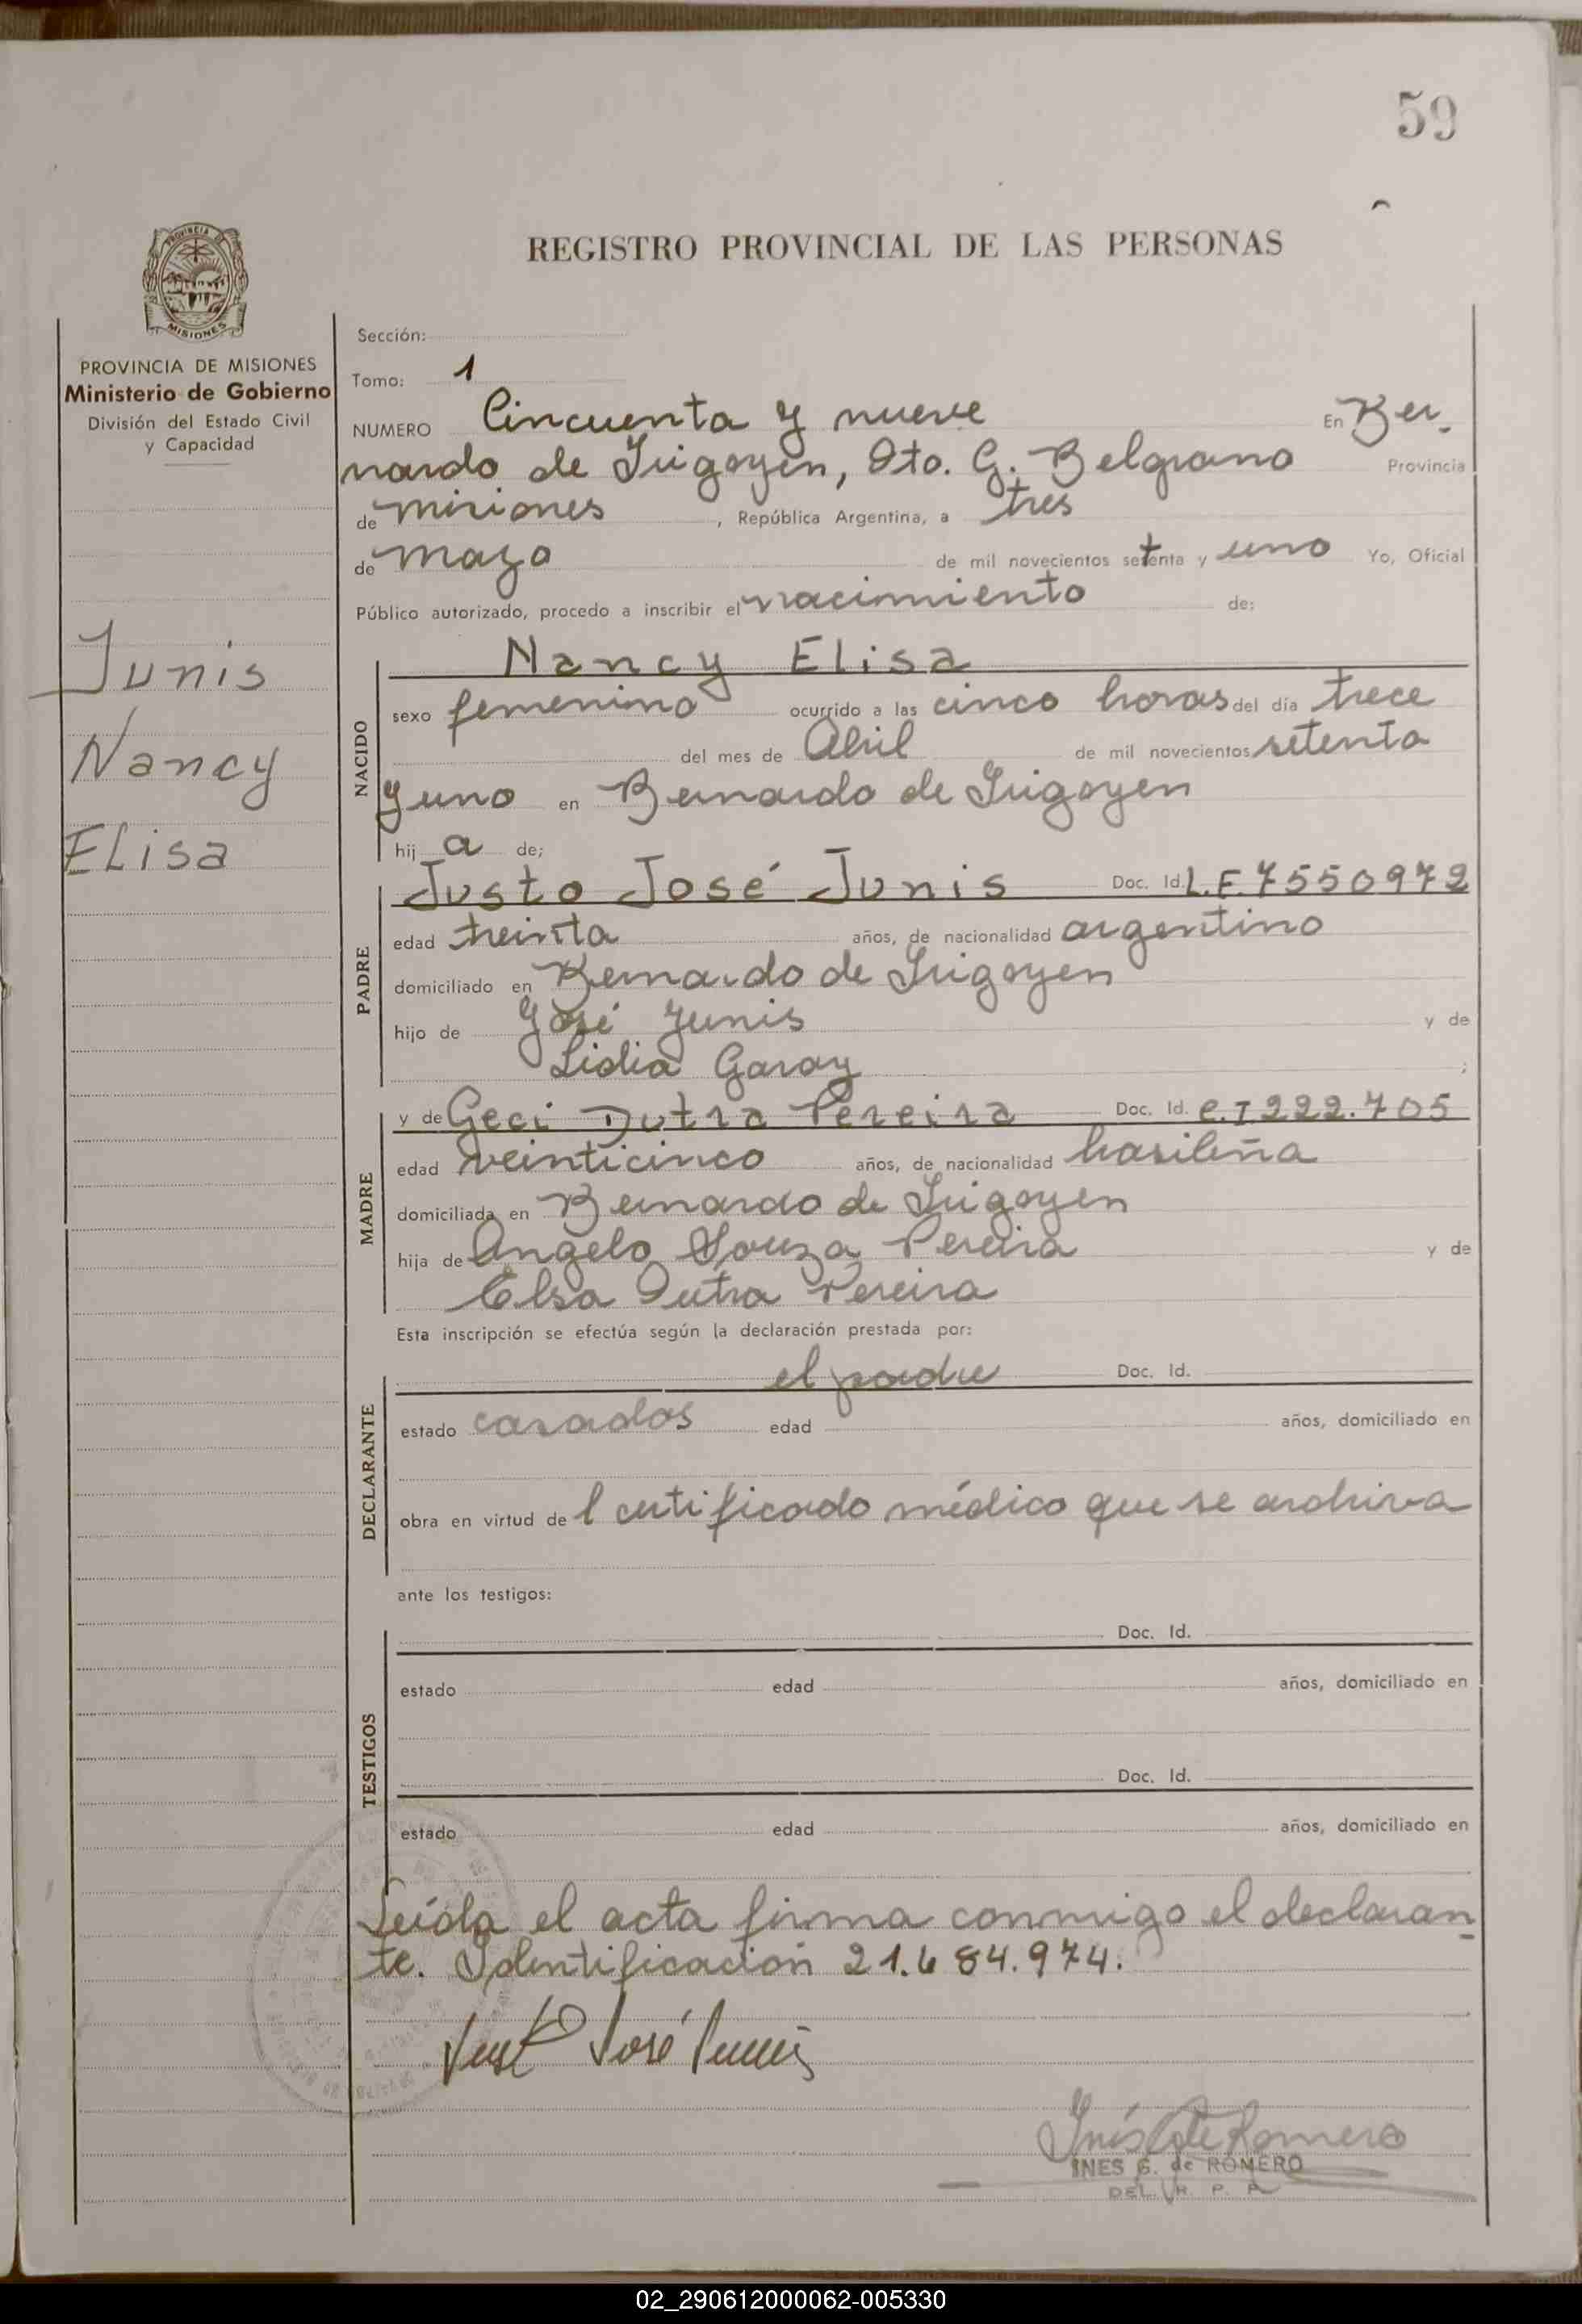 59
REGISTRO PROVINCIAL DE LAS PERSONAS
PROVINCIA DE
MISIONES
PROVINCIA DE MISIONES
Ministerio de Gobierno
División del Estado Civil
y Capacidad
Junis
Nancy
ELisa
Sección:
Tomo: 1
NUMERO Cincuenta y nueve En Ber-
nardo de Irigoyen, Dto. G. Belgrano Provincia
de Misiones , República Argentina, a tres
de mayo de mil novecientos setenta y uno Yo, Oficial
Público autorizado, procedo a inscribir el nacimiento de:
NACIDO
Nancy Elisa
sexo femenino ocurrido a las cinco horas del día trece
del mes de Abril de mil novecientos setenta
y uno en Bernardo de Irigoyen
hij a de;
PADRE
Justo José Junis Doc. Id L.E. 7550972
edad treinta años, de nacionalidad argentino
domiciliado en Bernardo de Irigoyen
hijo de José Junis y de
Lidia Garay ;
MADRE
y de Geci Dutra Pereira Doc. Id. C.I 222.705
edad veinticinco años, de nacionalidad brasileña
domiciliada en Bernardo de Irigoyen
hija de Angelo Souza Pereira y de
Elsa Dutra Pereira
Esta inscripción se efectúa según la declaración prestada por:
DECLARANTE
el padre Doc. Id.
estado casados edad años, domiciliado en
obra en virtud de l certificado médico que se archiva
ante los testigos:
TESTIGOS
Doc. Id.
estado edad años, domiciliado en
Doc. Id.
estado edad años, domiciliado en
Leída el acta firma conmigo el declaran-
te. Identificación 21.684.974.
Justo José Junis
Inés G de Romero
INES G. de ROMERO
DEL. R. P. P.
02_290612000062-005330